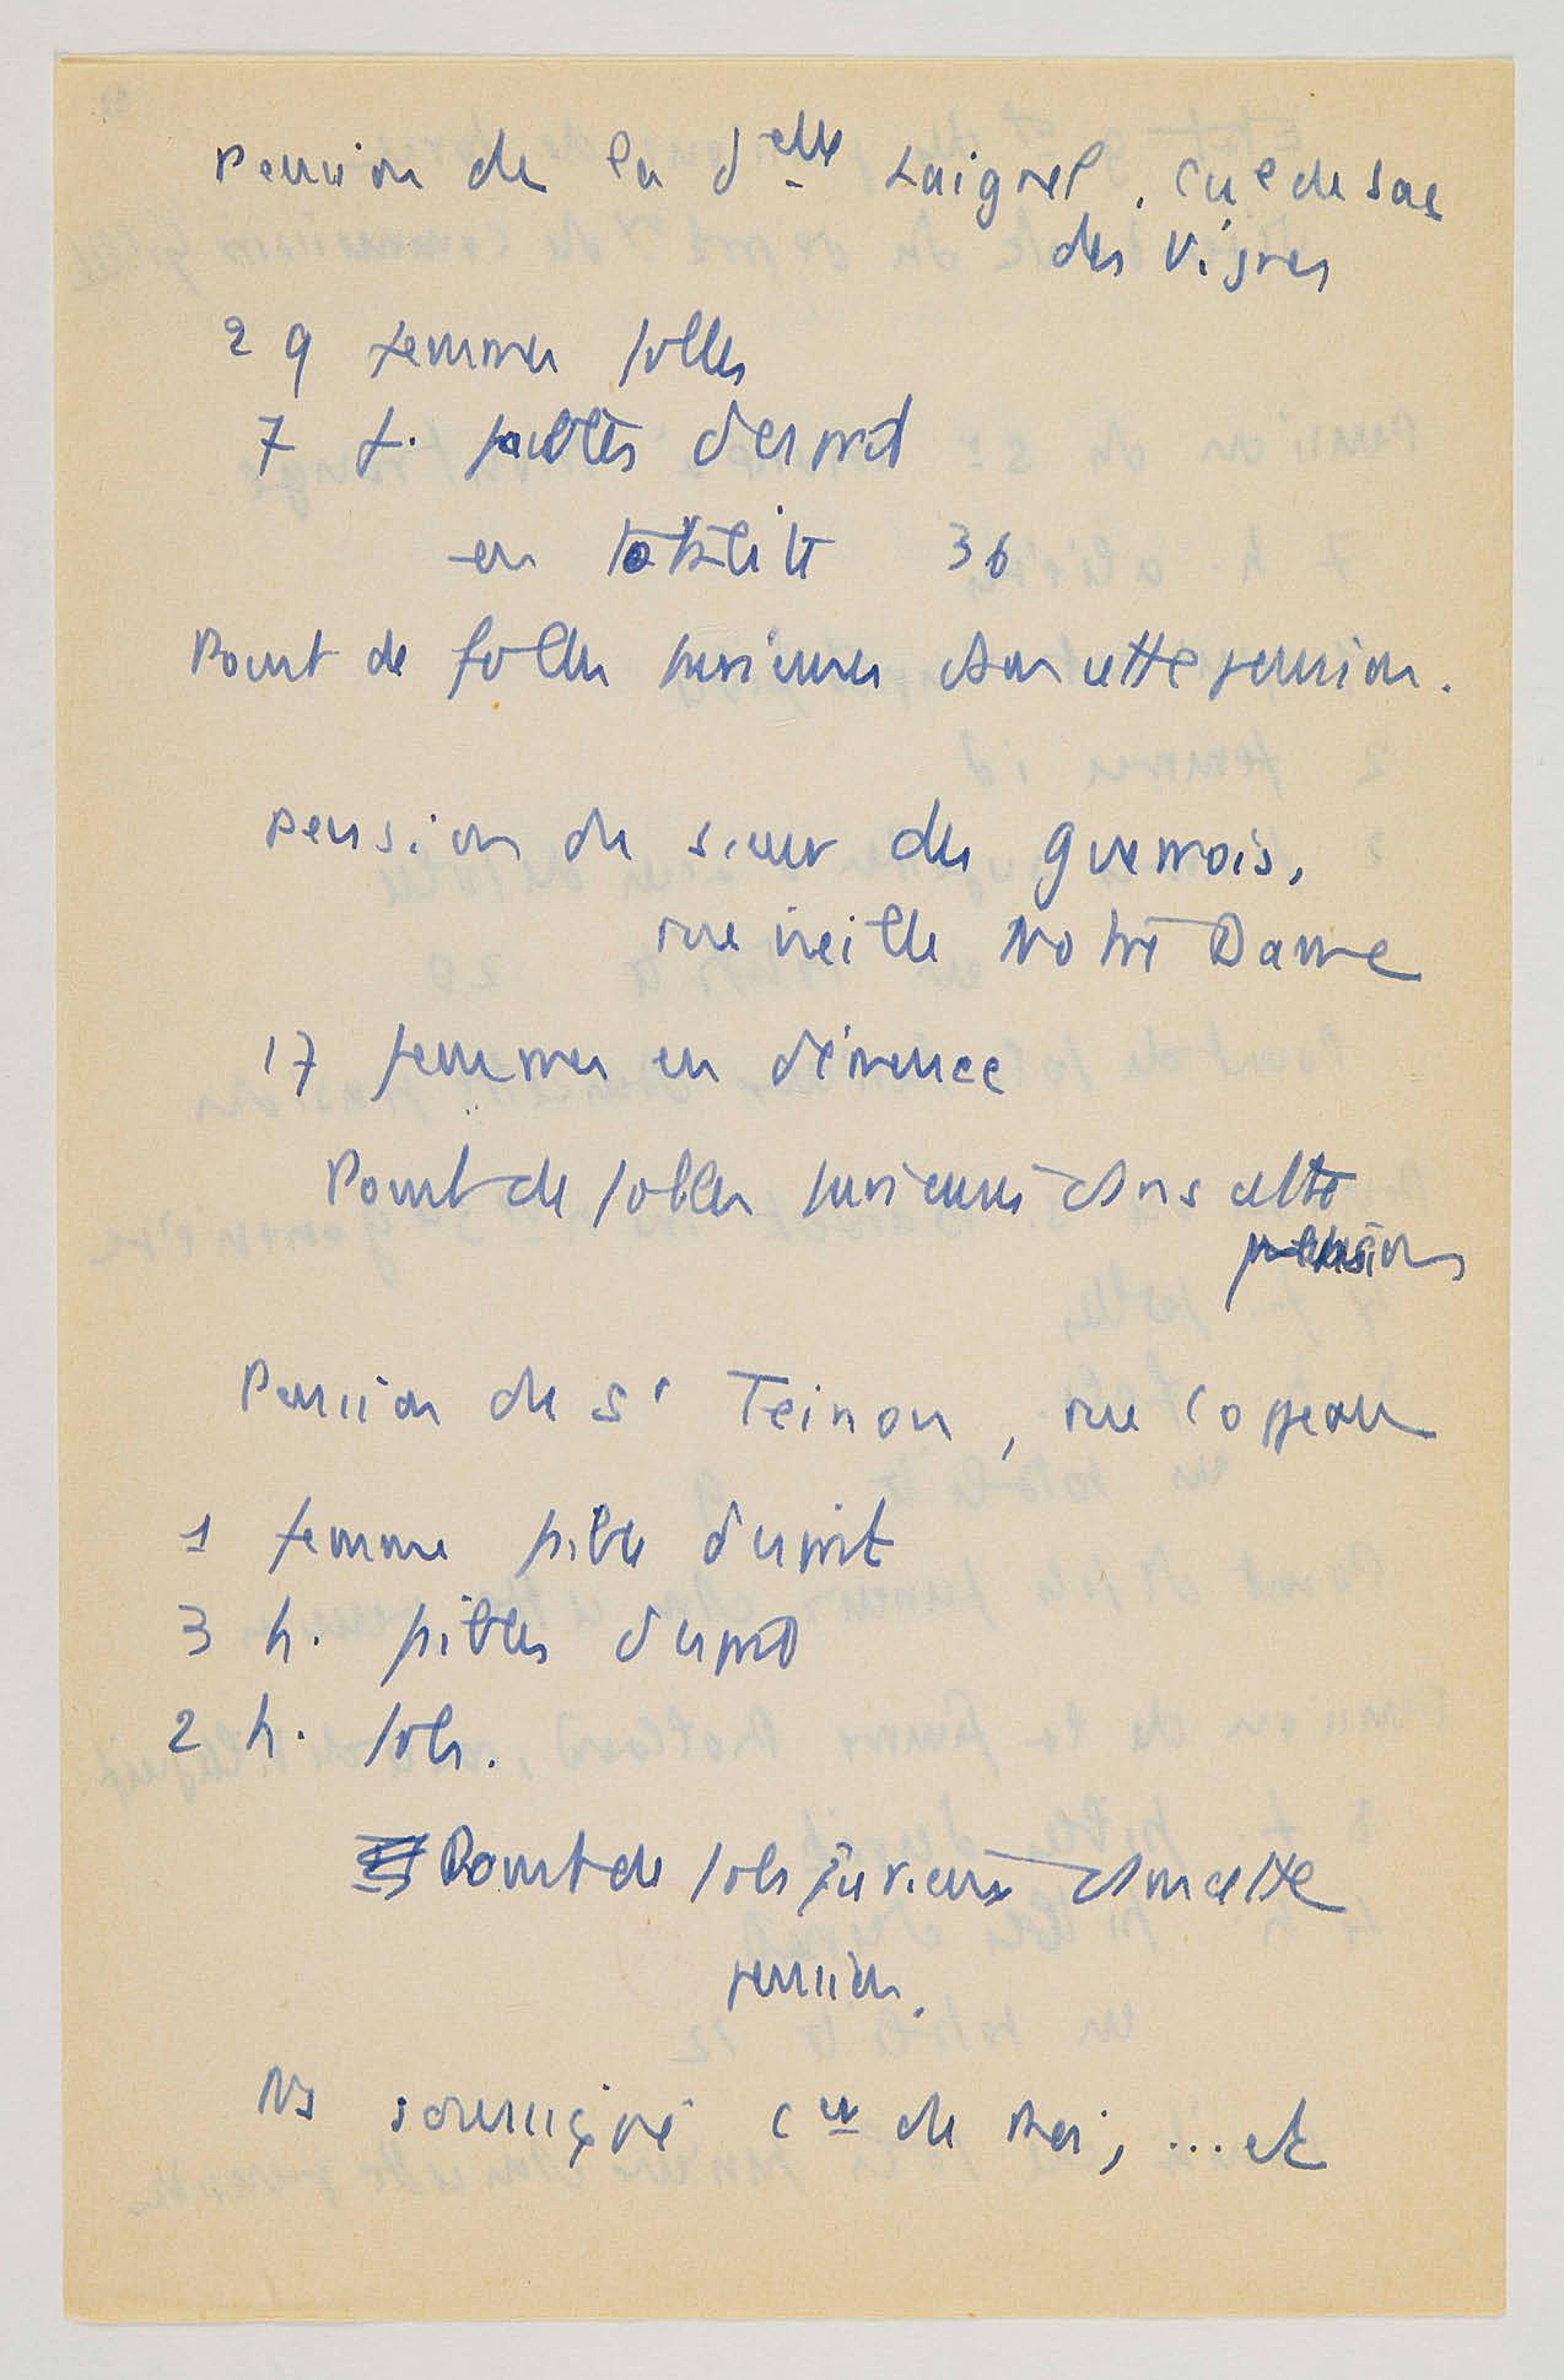 Pension de la d^elle Laignel, cul de sac
des Vignes
29 femmes folles
7 f. faibles d'esprit
en totalité 36
Point de folles furieuses dans cette pension.
Pension du sieur des Guerrois,
rue vieille Notre Dame
17 femmes en démence
Point de folles furieuses dans cette
pension
Pension du Sr Teinon, rue Coppeau
1 femme faible d'esprit
3 h. faibles d'esprit
2 h. fols.
Point de fols furieux dans cette
pension.
Ns soussigné Cer du Roi, ... etc